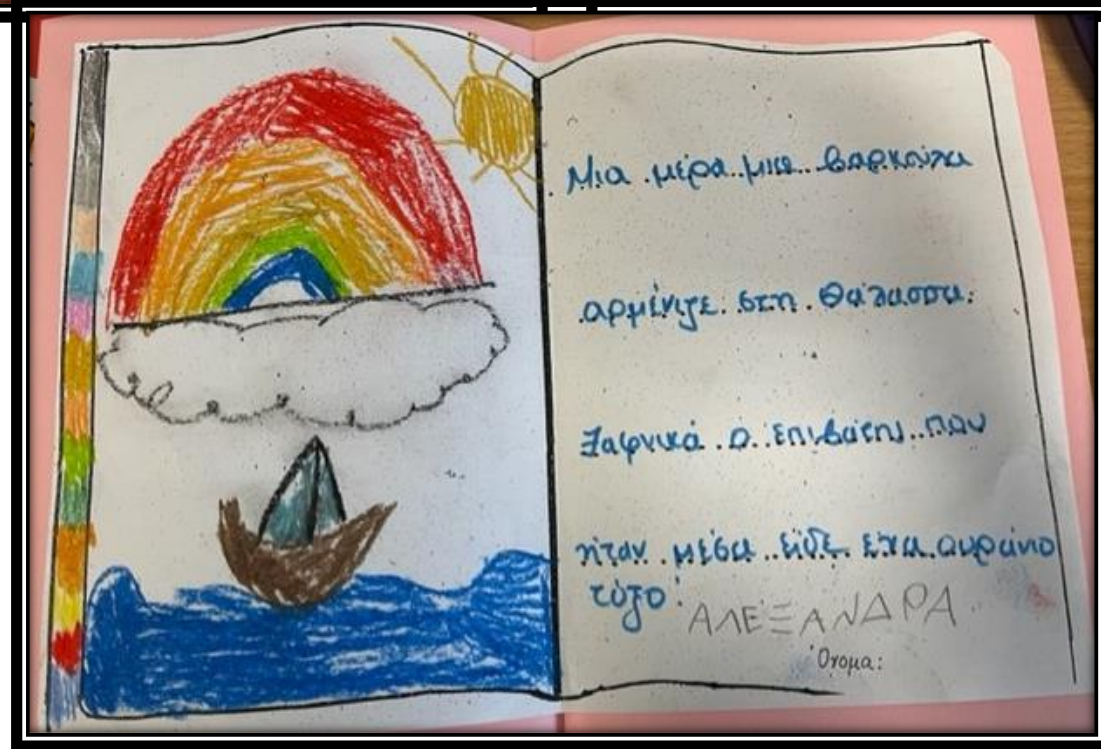 Μια μέρα μια βαρκούλα
αρμένιζε στη θάλασσα.
Ξαφνικά ο επιβάτης που
ήταν μέσα είδε ένα ουράνιο
τόξο.
ΑΛΕΞΑΝΔΡΑ
Όνομα: